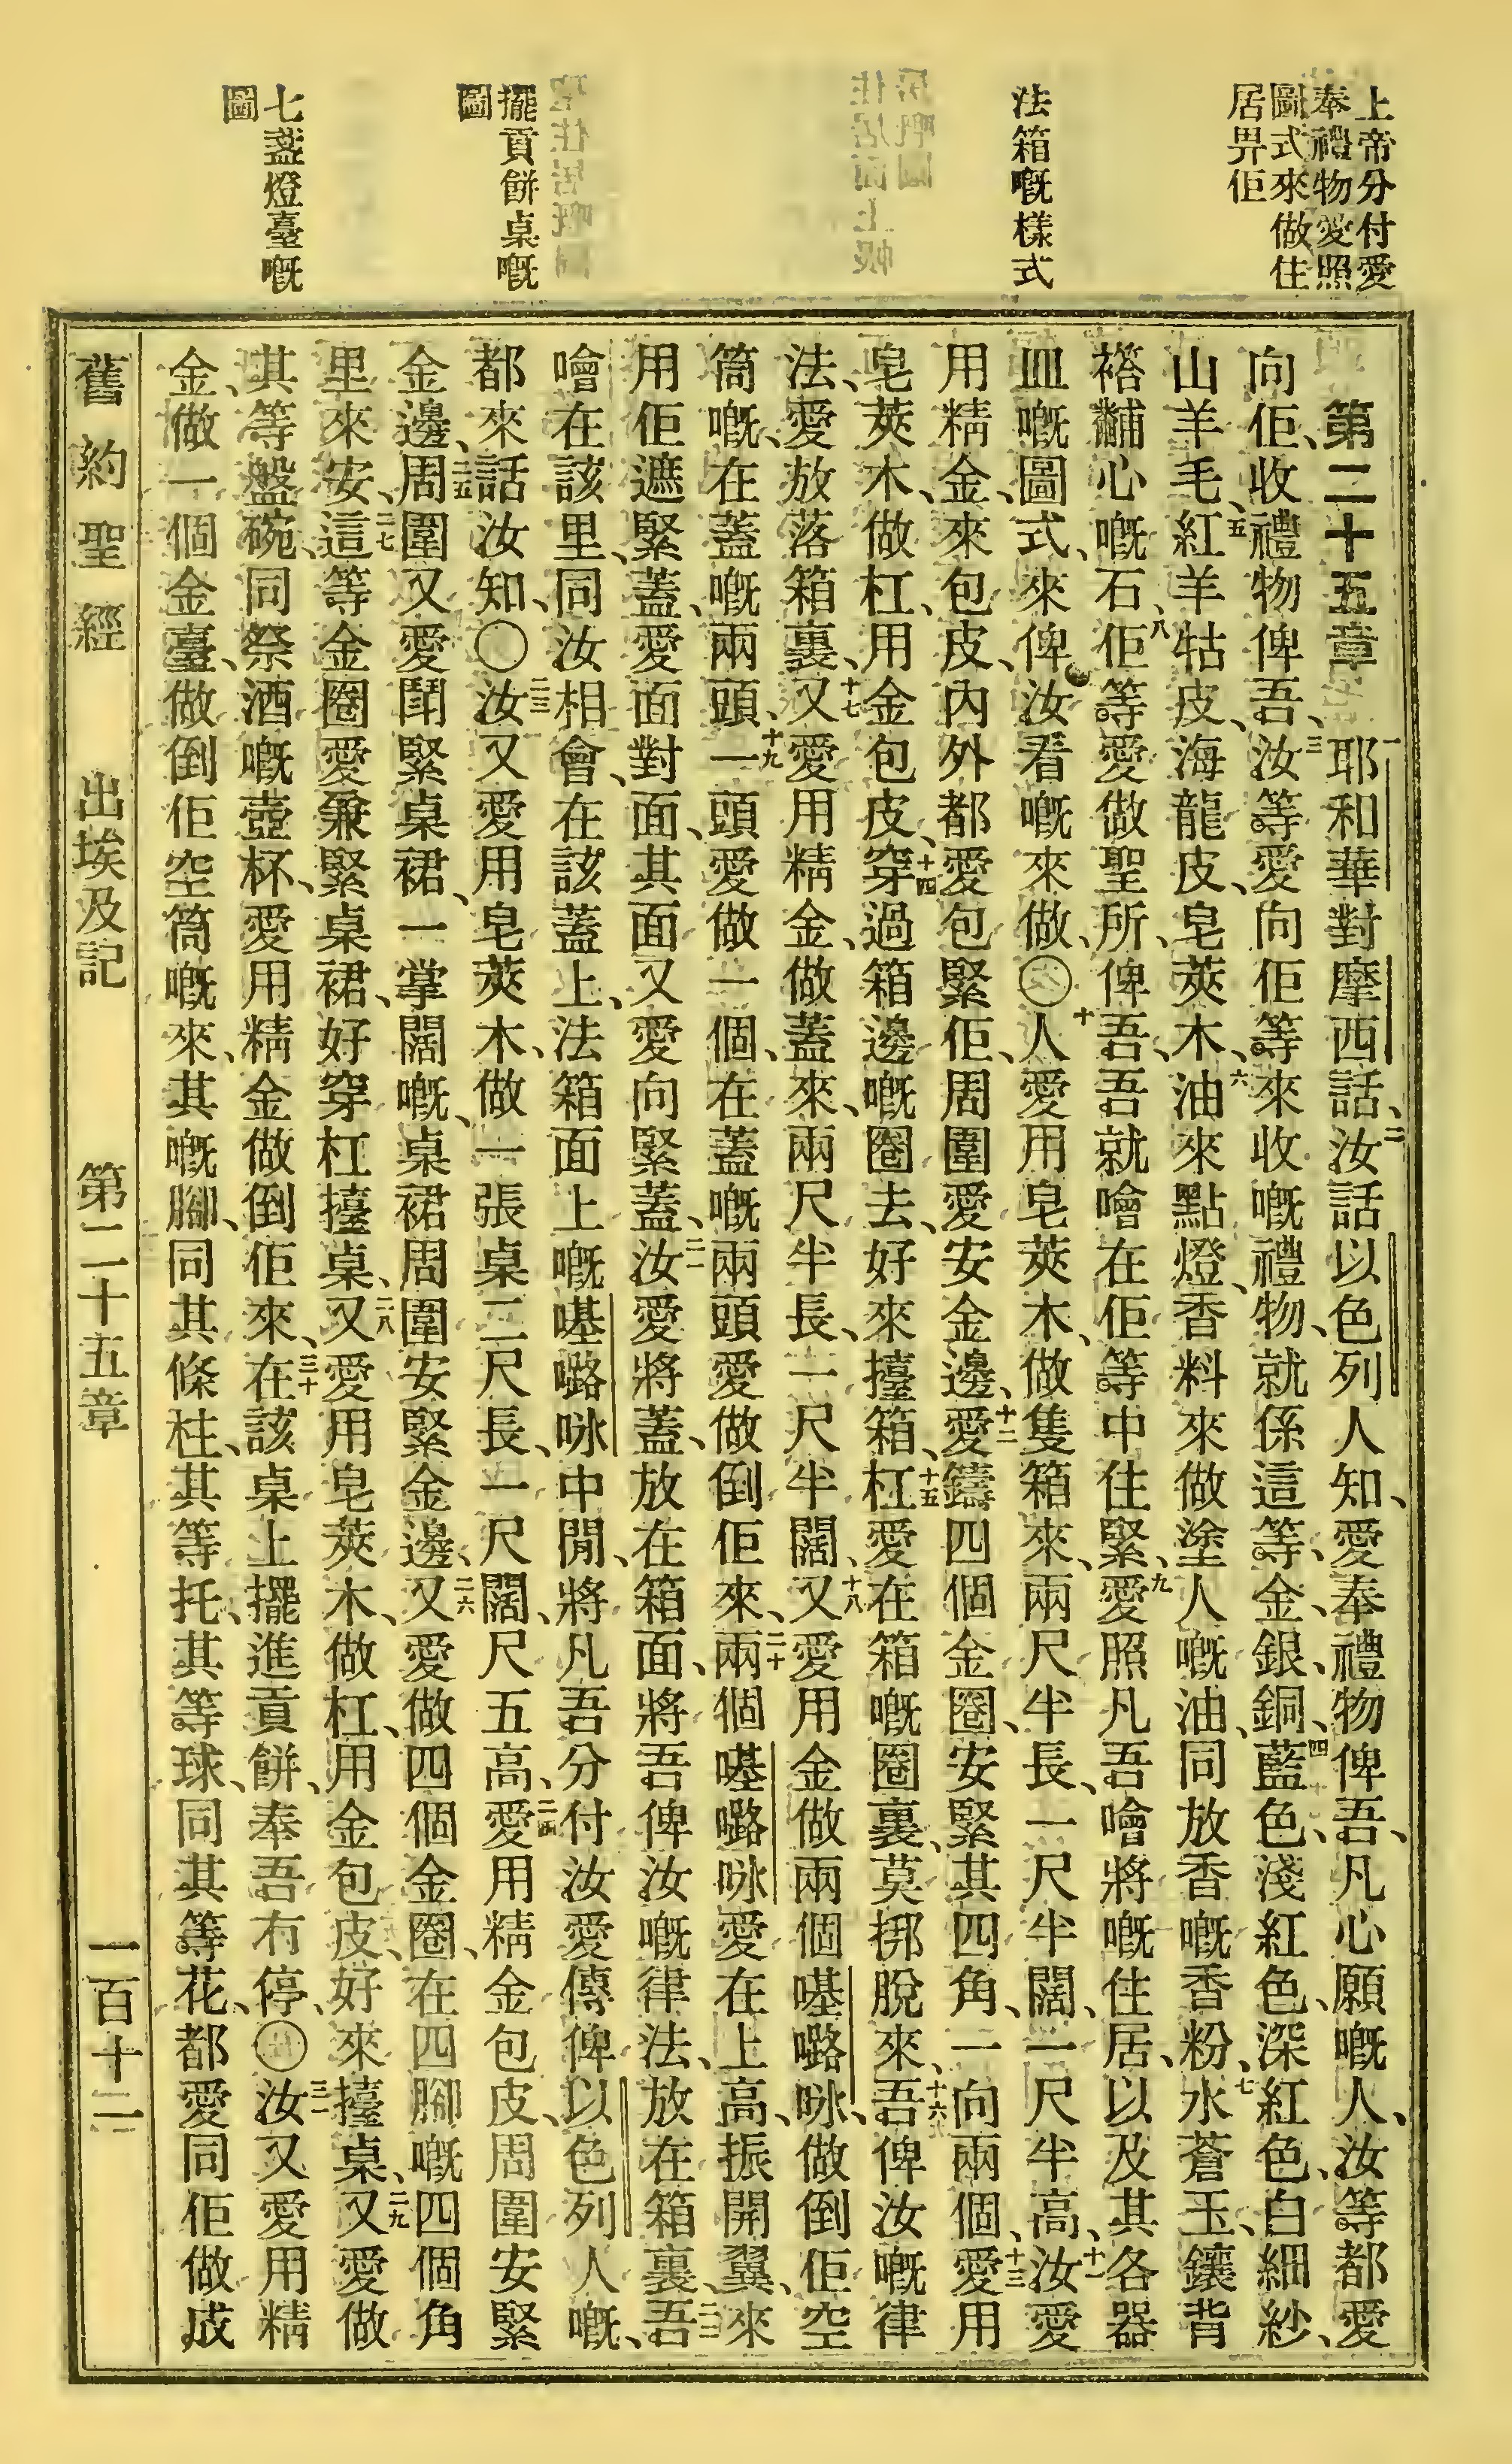 上帝分付愛
奉禮物愛照
圖式來做住
居畀佢
法箱嘅樣式
擺貢餅桌嘅
圖
七盞燈臺嘅
圖
第二十五章 一耶和華對摩西話、二汝話以色列人知、愛奉禮物俾吾、凡心願嘅人、汝等都愛
向佢、收禮物俾吾、三汝等愛向佢等來收嘅禮物、就係這等、金、銀、銅、四藍色、淺紅色、深紅色、白細紗、
山羊毛、五紅羊牯皮、海龍皮、皂莢木、六油來點燈、香料來做塗人嘅油、同放香嘅香粉、七水蒼玉、鑲背
褡黼心嘅石、八佢等愛做聖所、俾吾、吾就噲在佢等中住緊、九愛照凡吾噲將嘅住居、以及其各器
皿嘅圖式、來俾汝看嘅來做、○十人愛用皂莢木、做隻箱來、兩尺半長、一尺半闊、一尺半高、十一汝愛
用精金、來包皮、內外都愛包緊佢、周圍愛安金邊、十二愛鑄四個金圈、安緊其四角、一向兩個、十三愛用
皂莢木、做杠、用金包皮、十四穿過箱邊嘅圈去、好來擡箱、十五杠愛在箱嘅圈裏、莫挷脫來、十六吾俾汝嘅律
法、愛放落箱裏、十七又愛用精金、做蓋來、兩尺半長、一尺半闊、十八又愛用金做兩個𠹌嚕咏、做倒佢空
筒嘅、在蓋嘅兩頭、十九一頭愛做一個、在蓋嘅兩頭愛做倒佢來、二十兩個𠹌嚕咏愛在上高、振開翼、來
用佢遮緊蓋、愛面對面、其面又愛向緊蓋、二一汝愛將蓋、放在箱面、將吾俾汝嘅律法、放在箱裏、二二吾
噲在該里、同汝相會、在該蓋上、法箱面上嘅𠹌嚕咏中閒、將凡吾分付汝愛傳俾以色列人嘅、
都來話汝知、○二三汝又愛用皂莢木、做一張桌二尺長、一尺闊、尺五高、二四愛用精金包皮、周圍安緊
金邊、二五周圍又愛鬪緊桌裙、一掌闊嘅、桌裙周圍安緊金邊、二六又愛做四個金圈、在四腳嘅四個角
里來安、二七這等金圈愛兼緊桌裙、好穿杠擡桌、二八又愛用皂莢木、做杠、用金包皮、好來擡桌、二九又愛做
其等盤碗、同祭酒嘅壺杯、愛用精金做倒佢來、三十在該桌上擺進貢餅、奉吾冇停、○三一汝又愛用精
金、做一個金臺、做倒佢空筒嘅來、其嘅腳、同其條柱、其等托、其等球、同其等花、都愛同佢做成
舊約聖經 出埃及記 第二十五章 一百十二